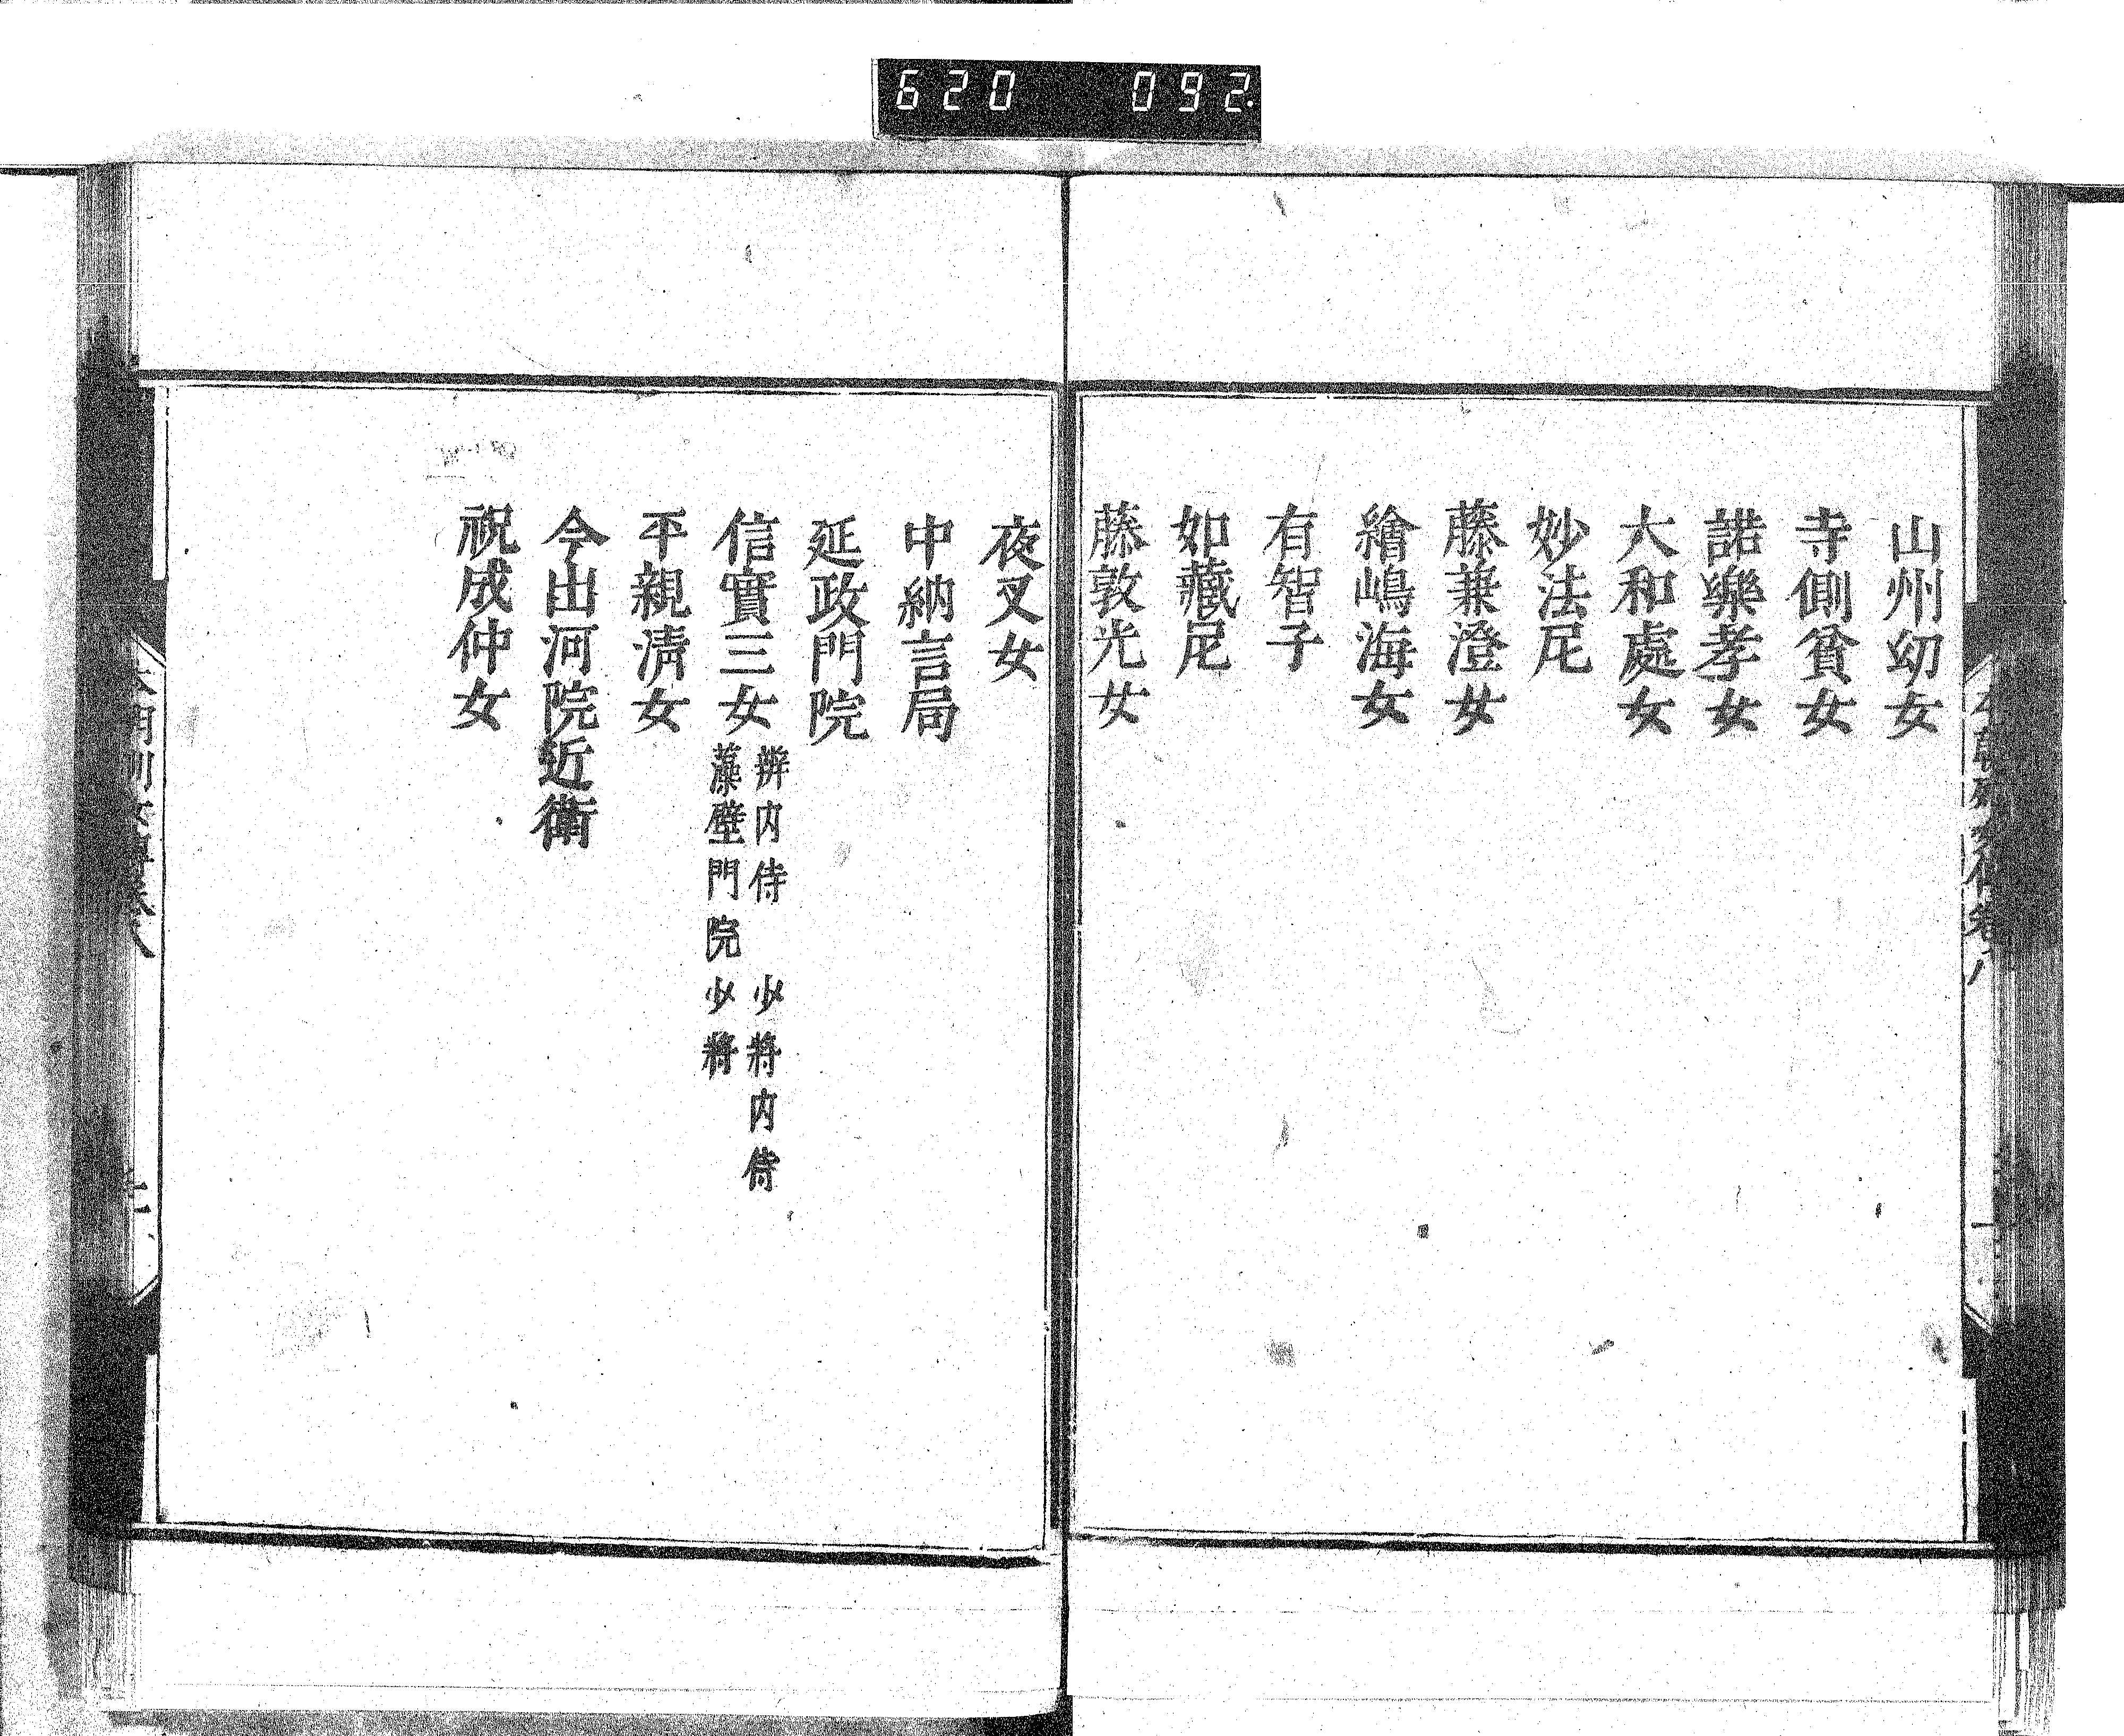 620 092.
山州幼女
寺側貧女
諾樂孝女
大和處女
妙法尼
藤兼澄女
繪嶋海女
有智子
如藏尼
藤敦光女
夜叉女
中納言局
延政門院
信實三女
辨内侍 少將内侍
藻壁門院少將
平親淸女
今出河院近衛
祝成仲女